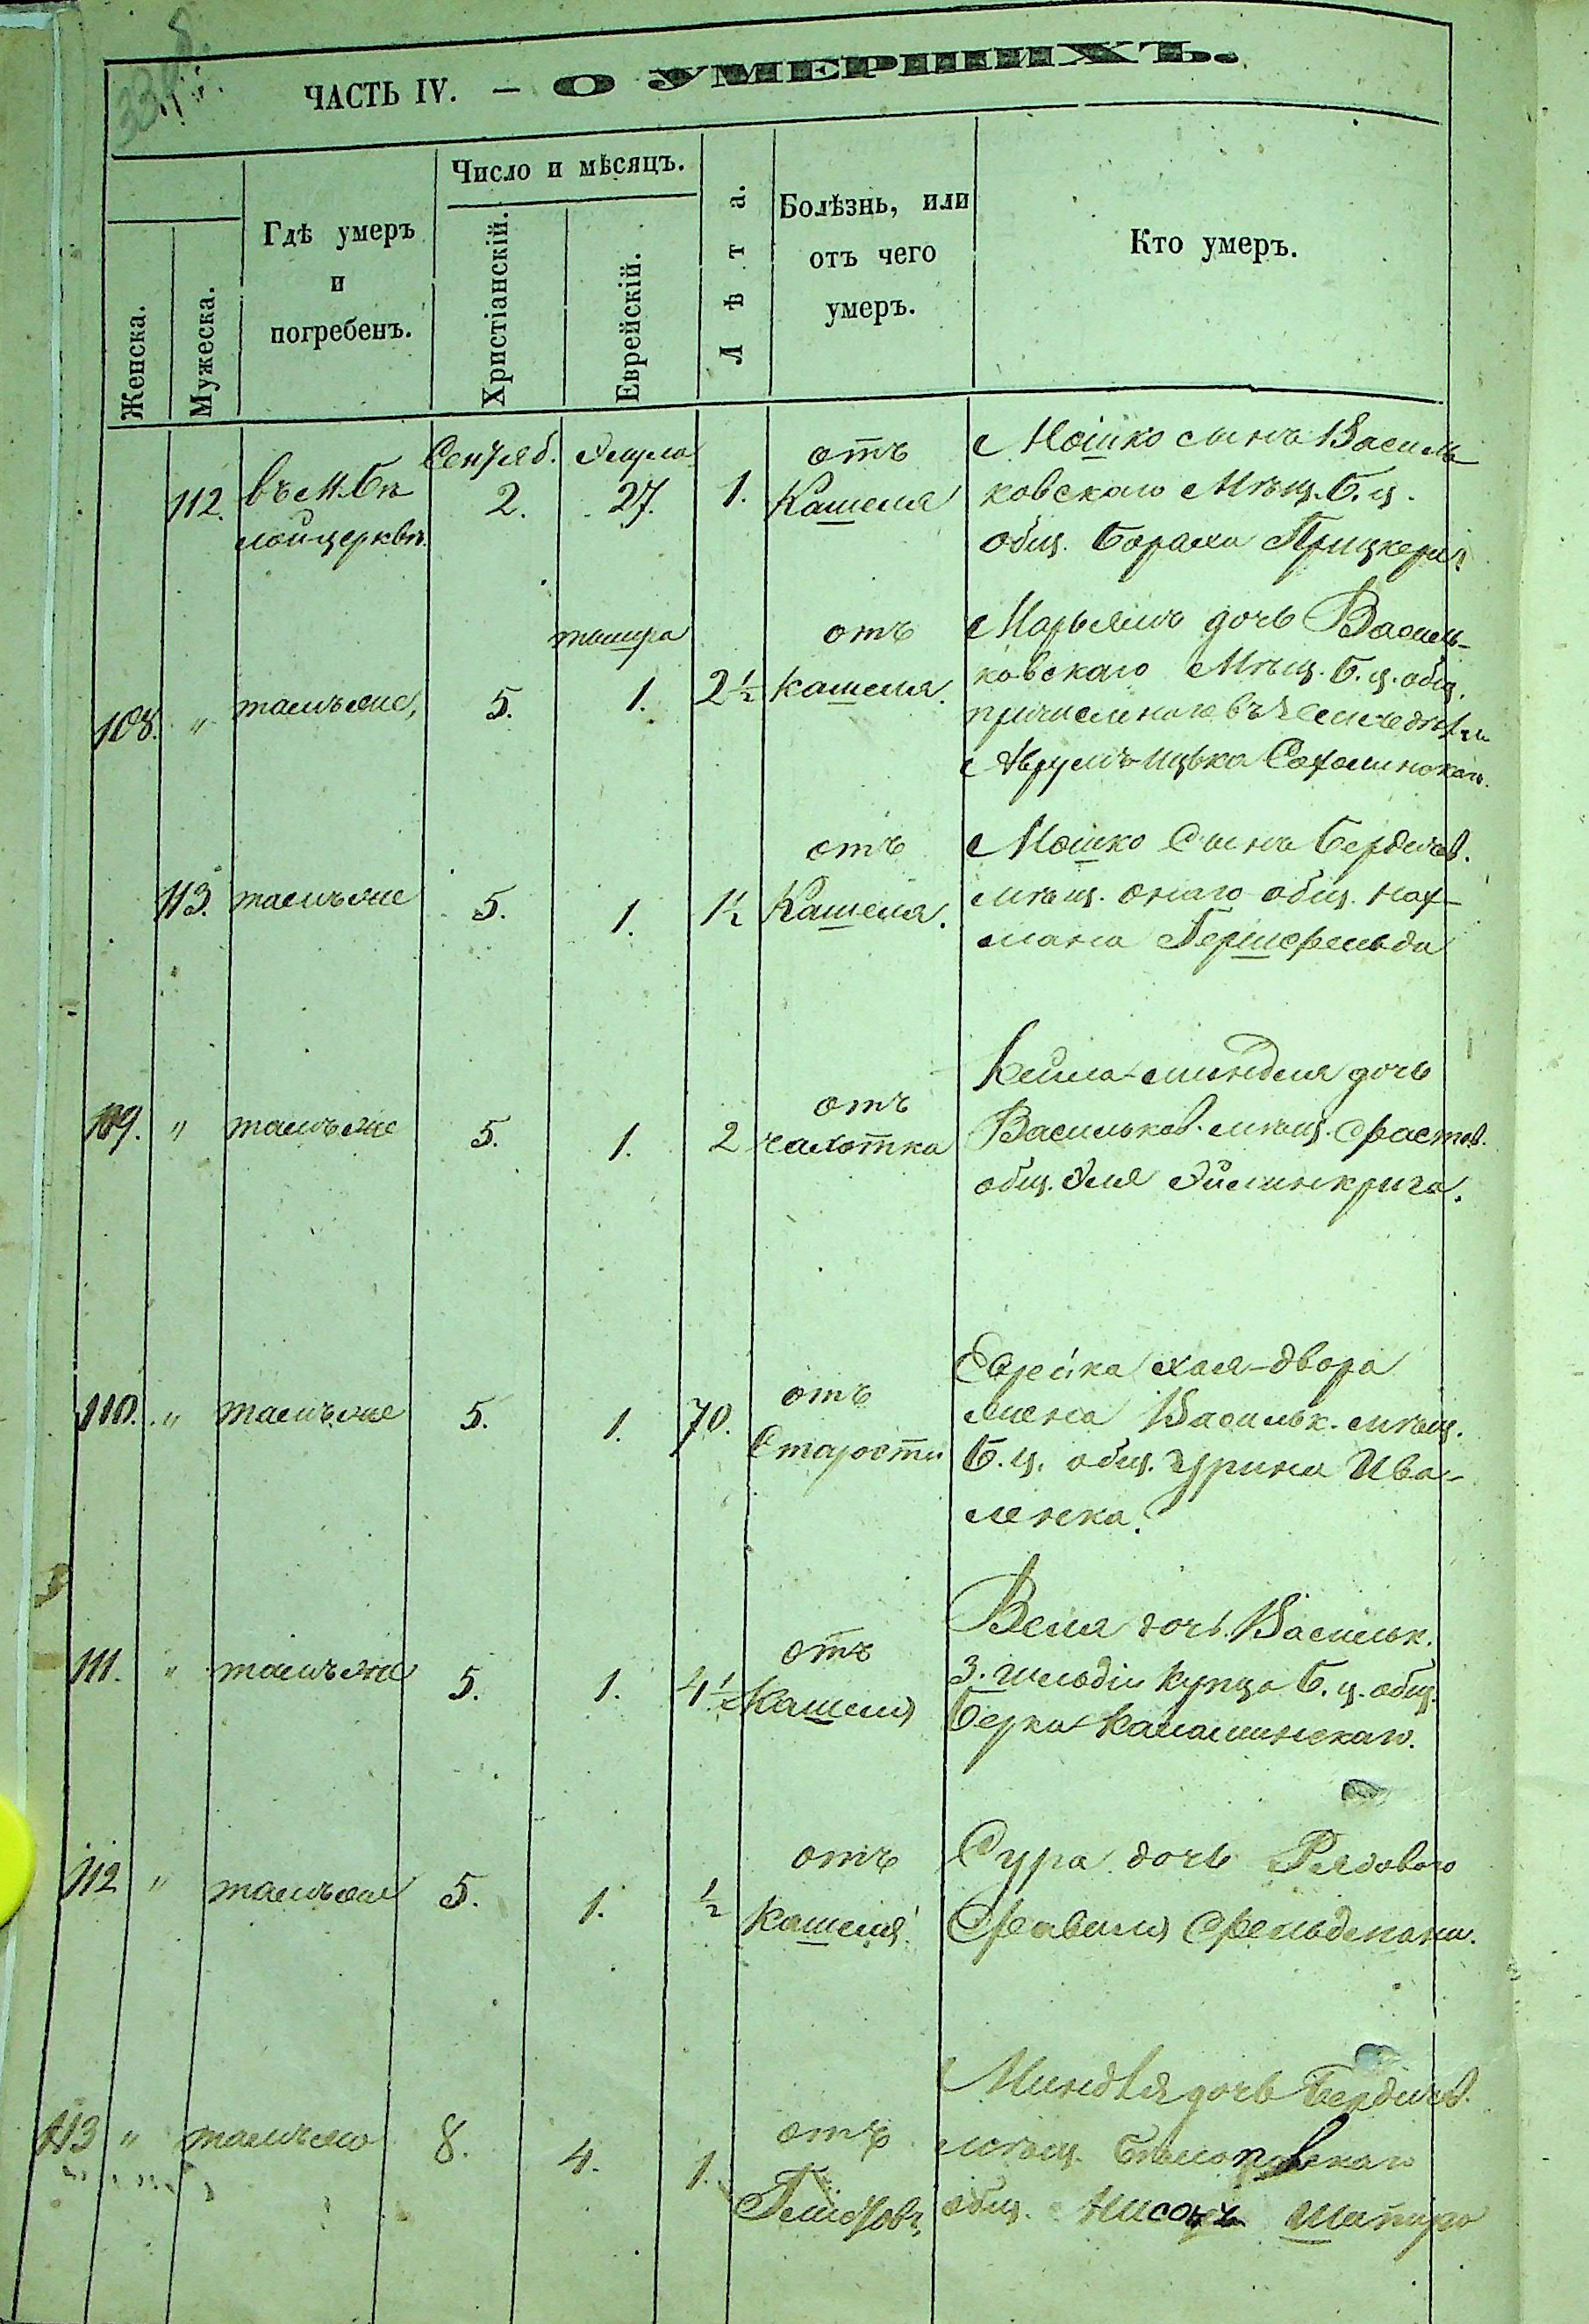 ЧАСТЬ IV. — О УМЕРШИХЪ.
Женска.
Мужеска.
Гдѣ умеръ
и
погребенъ.
Число и мѣсяцъ.
Христіанскій.
Еврейскій.
Лѣта.
Болѣзнь, или
отъ чего
умеръ.
Кто умеръ.
112.
въ м. Бѣ
лойцеркви.
Сентяб.
2.
Элула
27.
1.
отъ
Кашеля
Мошко сынъ Василь-
ковскаго Мѣщ. Б. ц.
общ. Бораха Прицкера
108. "
тамъже,
5.
тишра
1.
2½
отъ
кашеля.
Марьямъ дочь Василь-
ковскаго Мѣщ. Б. ц. общ.
Аврумъ-Ицька
113.
тамъже
5.
1.
1½
отъ
Кашеля.
Мошко Сынъ Бердичев.
мѣщ. онаго общ. Нах-
мана Гершфельда
109. "
тамъже
5.
1.
2
отъ
чахотка
Кейла-миндля дочь
Васильков. мѣщ. Фастов.
общ. Эля
110. "
тамъже
5.
1.
70.
отъ
Старости
Еврейка Хая-Двора
жена Васильк. мѣщ.
Б. ц. общ. Ива-
ленка.
111. "
тамъже
5.
1.
4½
отъ
Кашеля
Веля дочь Васильк.
3. гильдіи Купца Б. ц. общ.
Берка
112 "
тамъже
5.
1.
½
отъ
Кашеля
Сура дочь Рядоваго
Фельдмана.
113 "
тамъже
8.
4.
1.
отъ
Миндля дочь Бердичев.
мѣщ.
общ. Шапиро